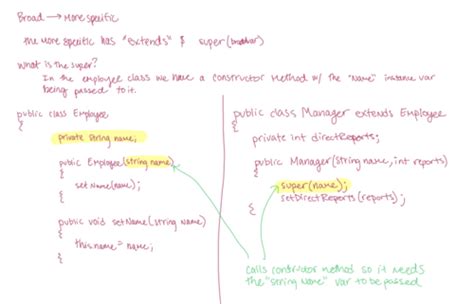 Broad → More specific
the more specific has "extends" & super(
What is the super?
In the employee class we have a constructor method w/ the "Name" instance var
being passed to it.
public class Employee
{
private String name;
public Employee(string name)
{
set Name(name);
}
public void setName(String Name)
{
this.name = name;
}
public class Manager extends Employee
{
private int directReports;
public Manager(string name, int reports)
{
super(name);
setDirectReports(reports);
{
calls constructor method so it needs
the "string Name" var to be passed